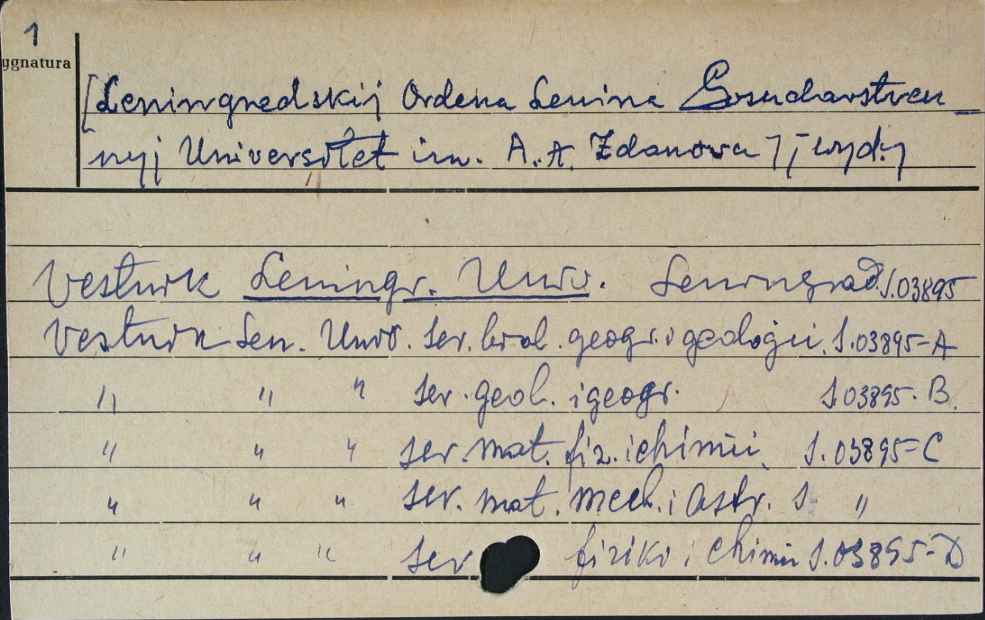 1
ygnatura
[Leningradskij Ordena Lenina Gosudarstven
nyj Universitet im. A.A. Ždanova]; wyd.]
Vestnik Leningr. Univ. Leningrad. S.03895
Vestnik Len. Univ. ser. biol. geogr. i geologii. S.03895-A
" " " ser. geol. i geogr. S03895-B.
" " " ser. mat. fiz. i chimii. S.03895-C
" " " ser. mat. mech. i astr. S "
" " " ser fiziki i chimii S.03895-D